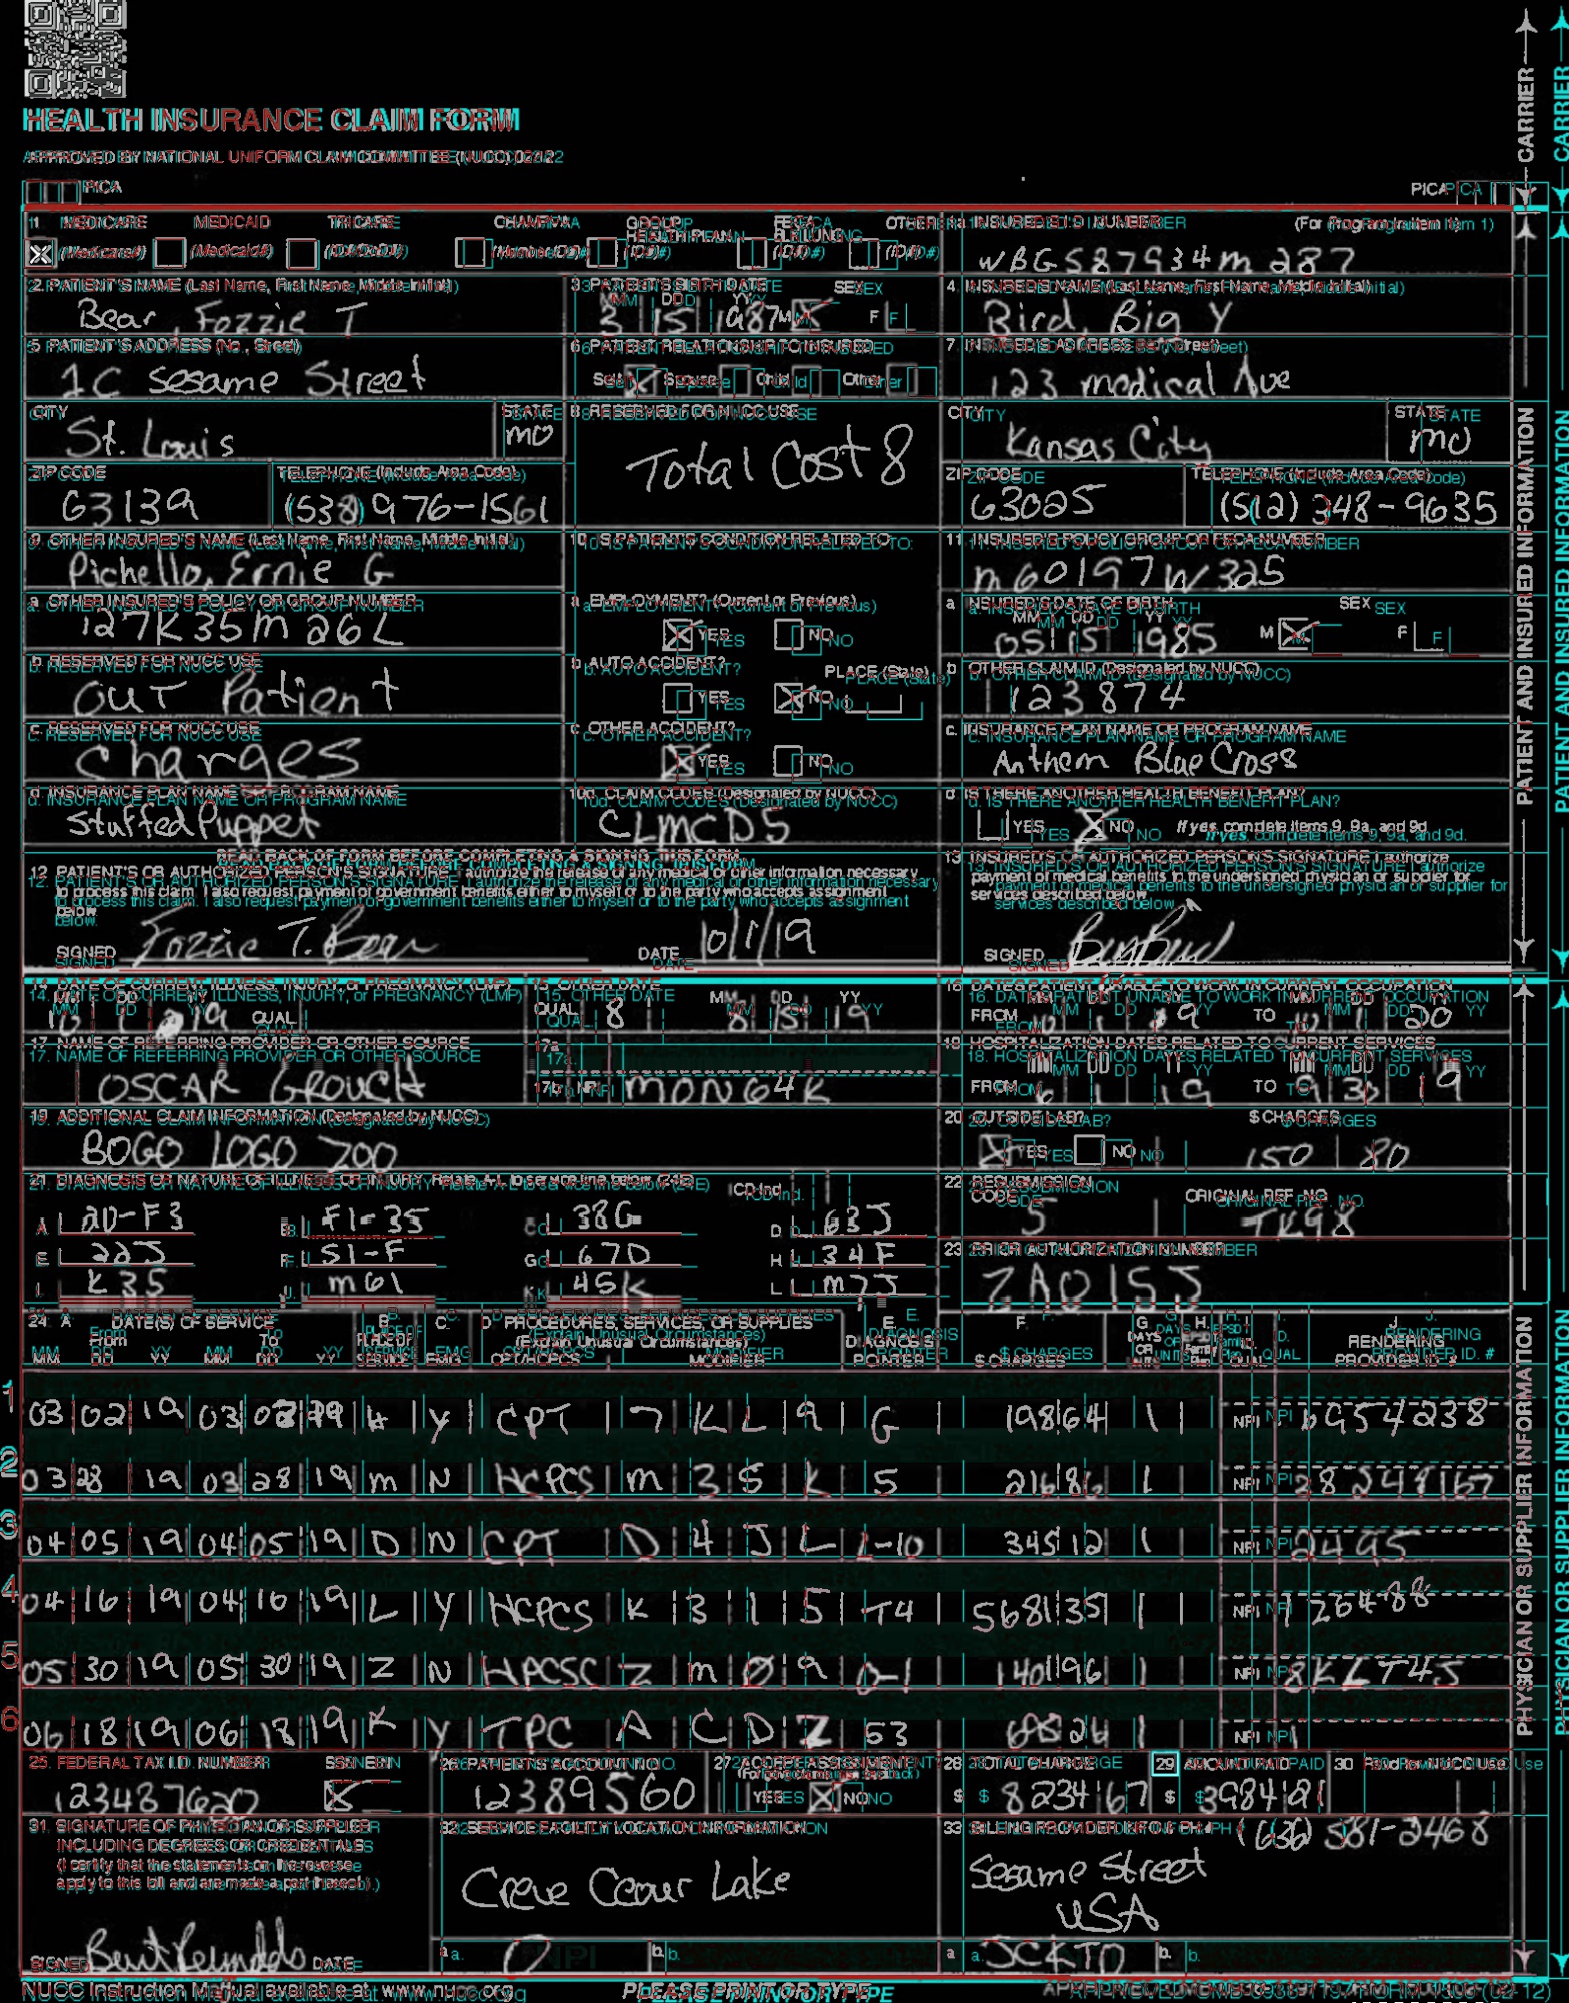 HEALTH INSURANCE CLAIM FORM
APPROVED BY NATIONAL UNIFORM CLAIM COMMITTEE (NUCC) 02/12
PICA PICA
CARRIER
1. MEDICARE MEDICAID TRICARE CHAMPVA GROUP HEALTH PLAN FECA BLK LUNG OTHER
(Medicare#) (Medicaid#) (ID#/DoD#) (Member ID#) (ID#) (ID#) (ID#)
1a. INSURED'S I.D. NUMBER (For Program in Item 1)
WBG587934m287
2. PATIENT'S NAME (Last Name, First Name, Middle Initial)
Bear, Fozzie T
3. PATIENT'S BIRTH DATE SEX
MM DD YY
3 15 1987 M F
4. INSURED'S NAME (Last Name, First Name, Middle Initial)
Bird, Big Y
5. PATIENT'S ADDRESS (No., Street)
1C Sesame Street
6. PATIENT RELATIONSHIP TO INSURED
Self Spouse Child Other
7. INSURED'S ADDRESS (No., Street)
123 medical Ave
CITY STATE
St. Louis mo
8. RESERVED FOR NUCC USE
Total Cost 8
CITY STATE
Kansas City mo
ZIP CODE TELEPHONE (Include Area Code)
63139 (538) 976-1561
ZIP CODE TELEPHONE (Include Area Code)
63025 (512) 348-9635
9. OTHER INSURED'S NAME (Last Name, First Name, Middle Initial)
Pichello, Ernie G
10. IS PATIENT'S CONDITION RELATED TO:
11. INSURED'S POLICY GROUP OR FECA NUMBER
m60197W325
a. OTHER INSURED'S POLICY OR GROUP NUMBER
127K35m26L
a. EMPLOYMENT? (Current or Previous)
YES NO
a. INSURED'S DATE OF BIRTH SEX
MM DD YY
05 15 1985 M F
b. RESERVED FOR NUCC USE
OUT Patient
b. AUTO ACCIDENT? PLACE (State)
YES NO
b. OTHER CLAIM ID (Designated by NUCC)
123874
c. RESERVED FOR NUCC USE
Charges
c. OTHER ACCIDENT?
YES NO
c. INSURANCE PLAN NAME OR PROGRAM NAME
Anthem Blue Cross
d. INSURANCE PLAN NAME OR PROGRAM NAME
Stuffed Puppet
10d. CLAIM CODES (Designated by NUCC)
CLMCD5
d. IS THERE ANOTHER HEALTH BENEFIT PLAN?
YES NO If yes, complete items 9, 9a, and 9d.
READ BACK OF FORM BEFORE COMPLETING & SIGNING THIS FORM.
12. PATIENT'S OR AUTHORIZED PERSON'S SIGNATURE I authorize the release of any medical or other information necessary
to process this claim. I also request payment of government benefits either to myself or to the party who accepts assignment
below.
SIGNED Fozzie T. Bear DATE 10/1/19
13. INSURED'S OR AUTHORIZED PERSON'S SIGNATURE I authorize
payment of medical benefits to the undersigned physician or supplier for
services described below.
SIGNED
PATIENT AND INSURED INFORMATION
14. DATE OF CURRENT ILLNESS, INJURY, or PREGNANCY (LMP)
MM DD YY
10 1 19 QUAL.
15. OTHER DATE MM DD YY
QUAL. 8 8 5 19
16. DATES PATIENT UNABLE TO WORK IN CURRENT OCCUPATION
MM DD YY MM DD YY
FROM 10 1 19 TO 10 1 20
17. NAME OF REFERRING PROVIDER OR OTHER SOURCE
OSCAR GROUCH
17a.
17b. NPI MON64K
18. HOSPITALIZATION DATES RELATED TO CURRENT SERVICES
MM DD YY MM DD YY
FROM 6 1 19 TO 9 30 19
19. ADDITIONAL CLAIM INFORMATION (Designated by NUCC)
BOGO LOGO 200
20. OUTSIDE LAB? $ CHARGES
YES NO 150 80
21. DIAGNOSIS OR NATURE OF ILLNESS OR INJURY Relate A-L to service line below (24E) ICD Ind.
A. 2D-F3 B. F1-35 C. 38G D. 63J
E. 22J F. S1-F G. 67D H. 34F
I. K35 J. m61 K. 45K L. M7J
22. RESUBMISSION CODE ORIGINAL REF. NO.
5 TK98
23. PRIOR AUTHORIZATION NUMBER
ZAD15J
24. A. DATE(S) OF SERVICE B. PLACE OF SERVICE C. EMG D. PROCEDURES, SERVICES, OR SUPPLIES E. DIAGNOSIS POINTER F. $ CHARGES G. DAYS OR UNITS H. EPSDT Family Plan I. ID. QUAL. J. RENDERING PROVIDER ID. #
From To (Explain Unusual Circumstances)
MM DD YY MM DD YY CPT/HCPCS MODIFIER
1 03 02 19 03 02 19 Y CPT 7 K L 9 G 198 64 1 NPI 6954238
2 03 28 19 03 28 19 m N HCPCS m 3 5 K 5 216 86 1 NPI 28248167
3 04 05 19 04 05 19 D N CPT D 4 J L 1-10 345 12 1 NPI 2495
4 04 16 19 04 16 19 L Y HCPCS K 3 1 5 T4 5681 35 1 NPI 726488
5 05 30 19 05 30 19 Z N HPCSC Z m Ø 9 0-1 1401 96 1 NPI 8KLT45
6 06 18 19 06 18 19 K Y TPC A C D Z 53 26 1 NPI
25. FEDERAL TAX I.D. NUMBER SSN EIN
123487620
26. PATIENT'S ACCOUNT NO.
12389560
27. ACCEPT ASSIGNMENT?
(For govt. claims, see back)
YES NO
28. TOTAL CHARGE
$ 8234 67
29. AMOUNT PAID
$ 3984 21
30. Rsvd for NUCC Use
31. SIGNATURE OF PHYSICIAN OR SUPPLIER
INCLUDING DEGREES OR CREDENTIALS
(I certify that the statements on the reverse
apply to this bill and are made a part thereof.)
SIGNED Burt Reynolds DATE
32. SERVICE FACILITY LOCATION INFORMATION
Creve Ceour Lake
a. b.
33. BILLING PROVIDER INFO & PH # (636) 581-2468
Sesame Street
USA
a. JCKTD b.
PHYSICIAN OR SUPPLIER INFORMATION
NUCC Instruction Manual available at: www.nucc.org
PLEASE PRINT OR TYPE